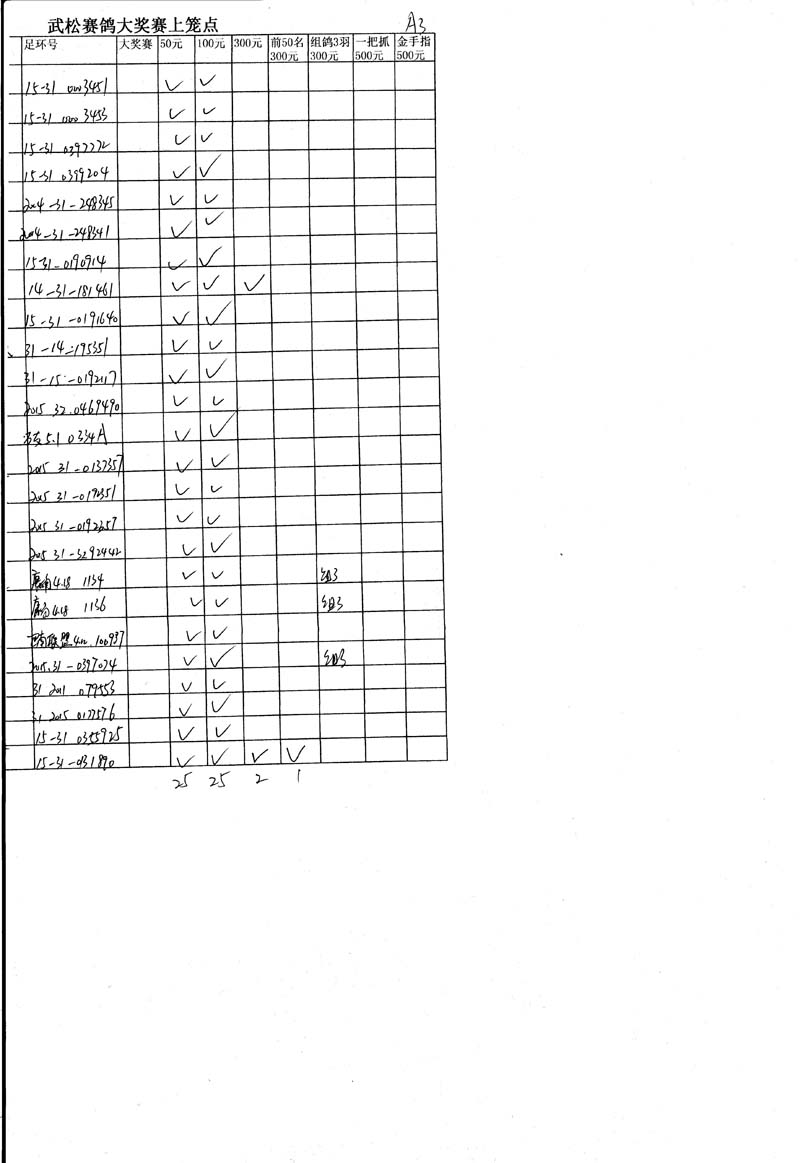 武松赛鸽大奖赛上笼点 A3
足环号 大奖赛 50元 100元 300元 前50名300元 组鸽3羽300元 一把抓500元 金手指500元
15-31 3451 ✓ ✓
15-31 3453 ✓ ✓
15-31 ✓ ✓
15-31 0399204 ✓ ✓
2004-31-248345 ✓ ✓
2004-31-248341 ✓ ✓
15-31-0190914 ✓ ✓
14-31-181461 ✓ ✓ ✓
15-31-0191640 ✓ ✓
31-14-195351 ✓ ✓
31-15-0192117 ✓ ✓
2015 32.0469490 ✓ ✓
5.1 0334A ✓ ✓
2015 31-0137357 ✓ ✓
2015 31-0192351 ✓ ✓
2015 31-0192357 ✓ ✓
2015 31-3292442 ✓ ✓
4.18 1134 ✓ ✓ 组3
4.18 1136 ✓ ✓ 组3
联盟 100937 ✓ ✓
2015.31-0397024 ✓ ✓ 组3
31 2011 079553 ✓ ✓
31 2015 0177576 ✓ ✓
15-31 0355925 ✓ ✓
15-31- ✓ ✓ ✓ ✓
25 25 2 1